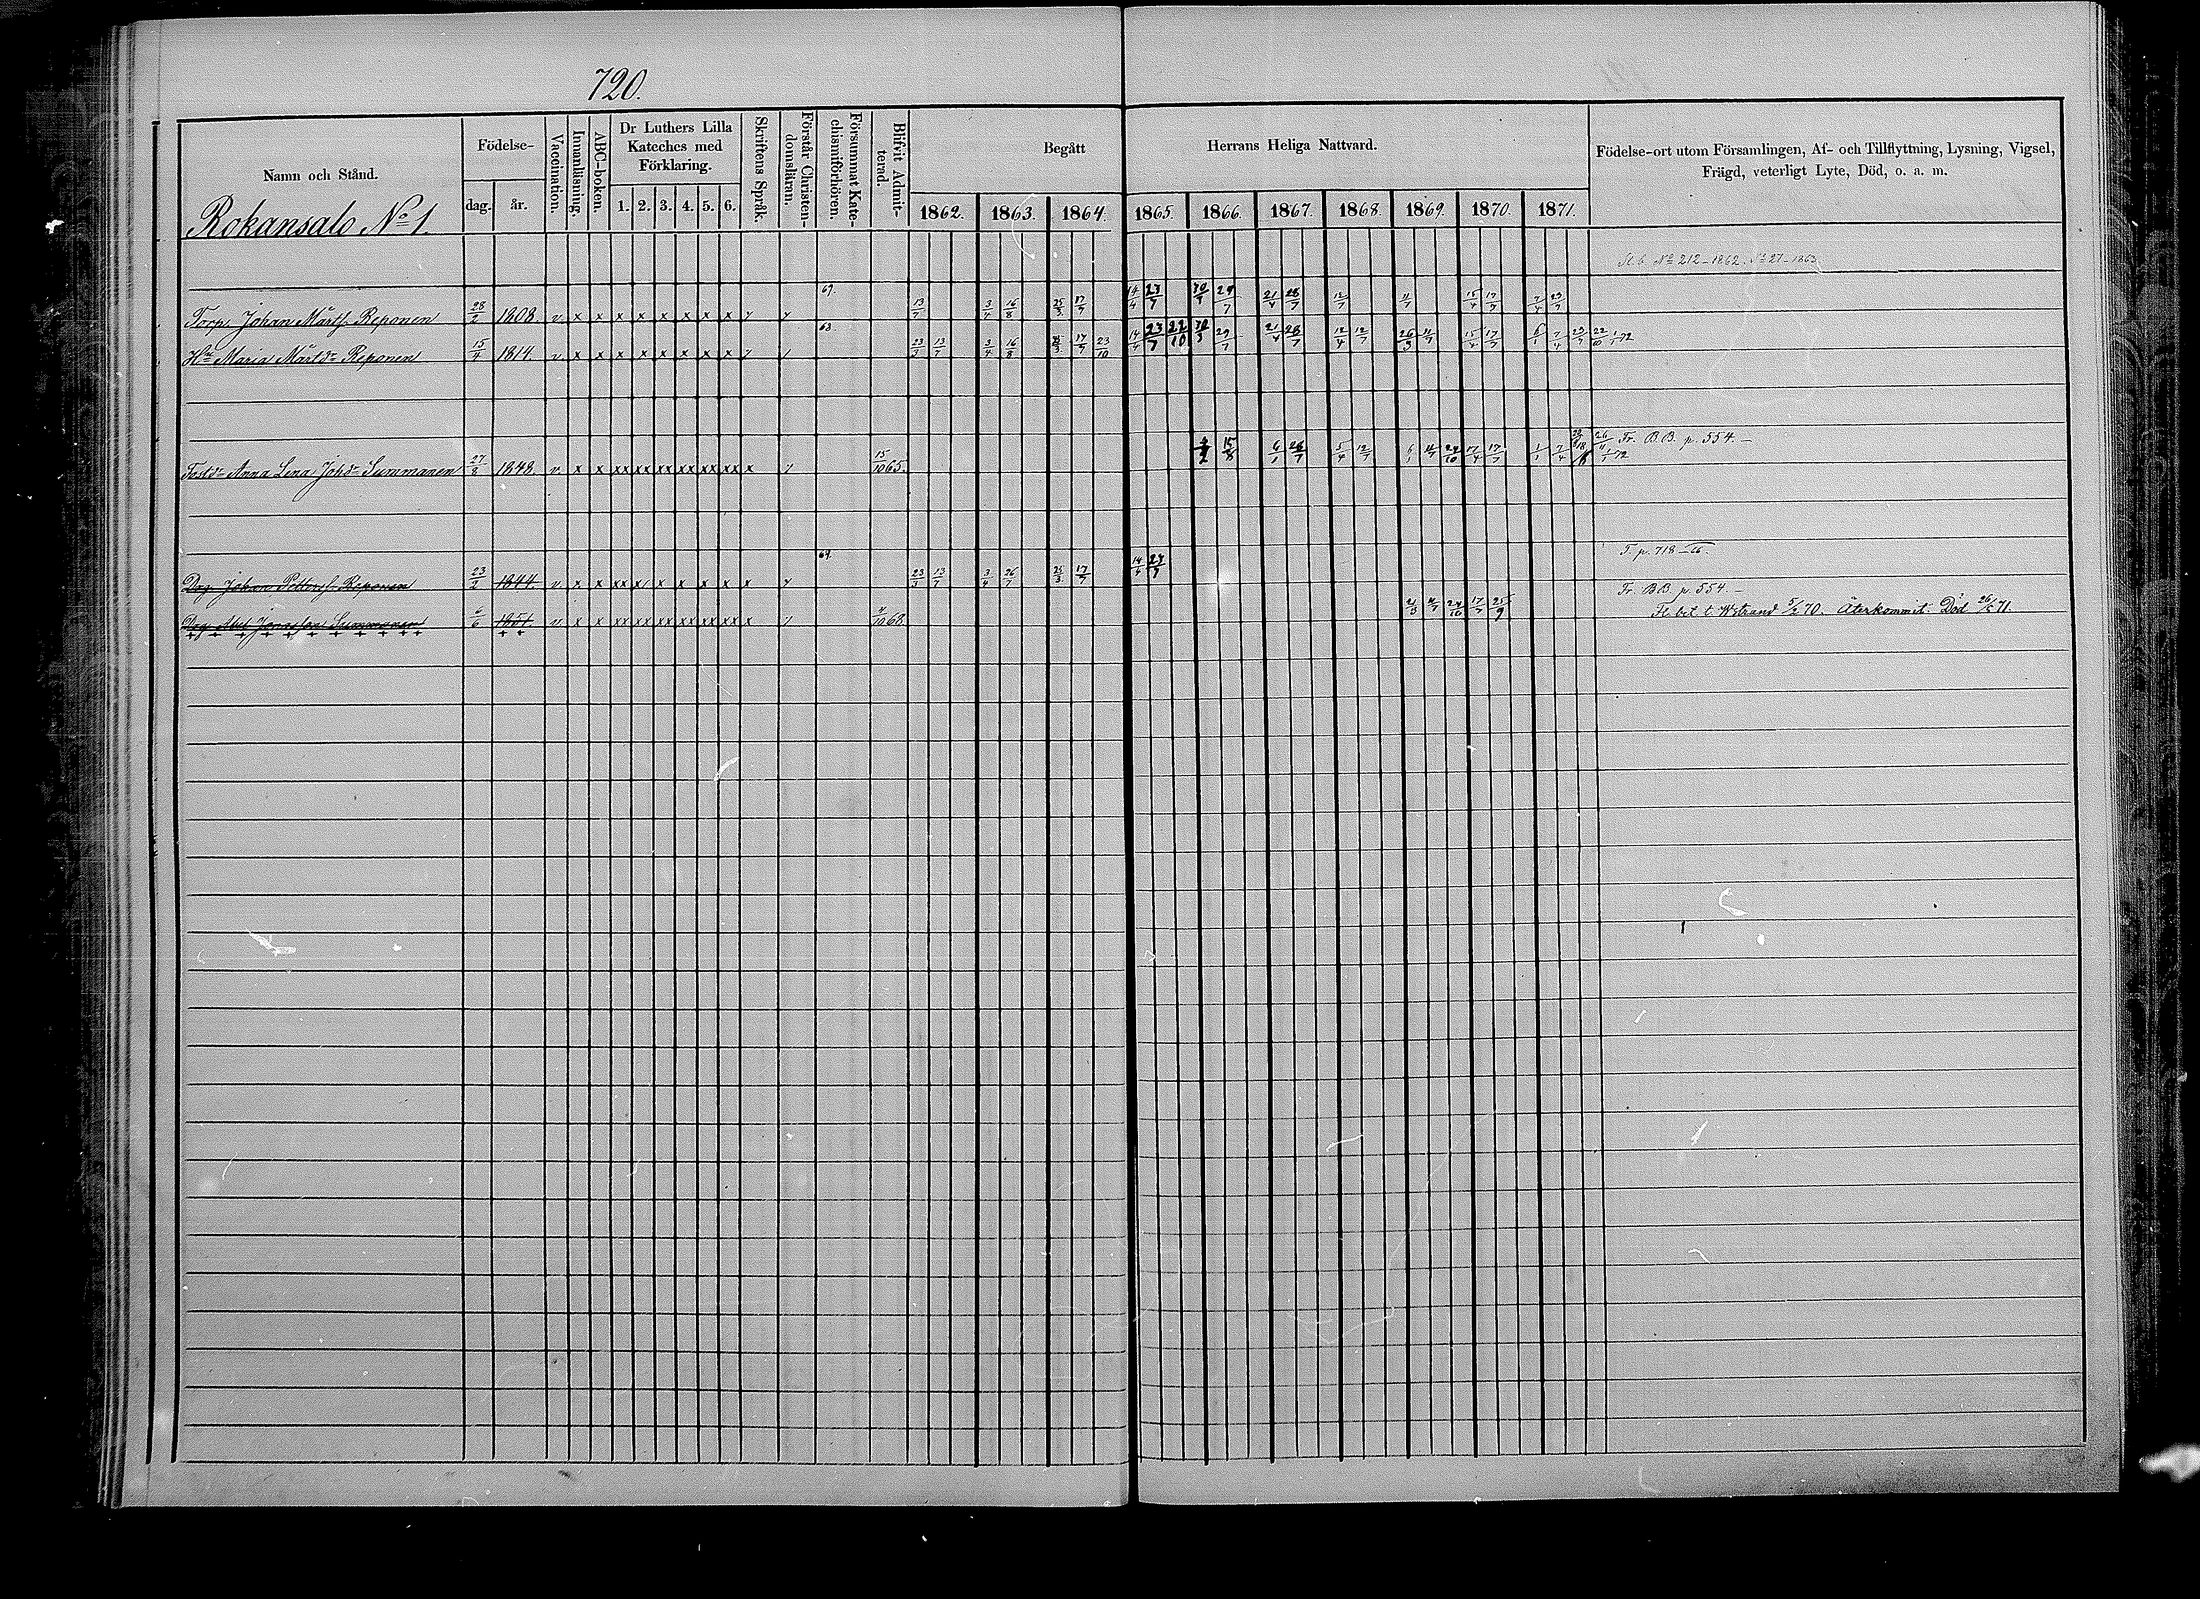 720.
Namn och Stånd.
Födelse-
dag. år.
Vaccination.
Innanläsning.
ABC-boken.
Dr Luthers Lilla Kateches med Förklaring.
1. 2. 3. 4. 5. 6.
Skriftens Språk.
Förstår Christen-domsläran.
Försummat Kate-chismiförhören.
Blifvit Admit-terad.
Begått Herrans Heliga Nattvard.
1862. 1863. 1864. 1865. 1866. 1867. 1868. 1869. 1870. 1871.
Födelse-ort utom Församlingen, Af- och Tillflyttning, Lysning, Vigsel,
Frägd, veterligt Lyte, Död, o. a. m.
Rokansalo No 1.
No 212-1862. No 27-1863
Torp. Johan Märts. Reponen 28/2 1808. v x x x x x x x x 69. 13/7 3/4 16/8 25/3 17/7 14/4 23/7 29/7 21/4 28/7 12/7 11/7 15/4 17/7 7/4 23/7
Hu Maria Märtsdr Reponen 15/4 1814. v x x x x x x x x 63. 23/3 13/7 3/4 16/8 17/7 23/10 14/4 23/7 22/10 29/7 21/4 28/7 12/4 12/7 15/4 17/7 6/1 7/4 23/7 22/10 1/1 72
Anna Lena Johsdr Summanen 27/8 1848. v x x xx xx xx xx xx xx x 15/10 65. 15/8 6/1 28/7 5/4 12/7 6/1 11/7 24/10 17/4 17/7 1/1 7/4 72 Fr. B.B. p. 554. –
Drg. Johan Petters. Reponen 23/2 1844. v x x xx x/ x x x x x 69. 23/3 13/7 3/4 26/7 25/3 17/7 14/4 23/7 T. p. 718
Drg Abel Jonasson Summanen 6/6 1851. v x x xx xx xx xx xx xx x 10 68. 24/10 17/7 25/9 Fr. B.B. p. 554. –
Fl. bet. t. Wstrand 5/2 70. Återkommit. Död 26/5 71.